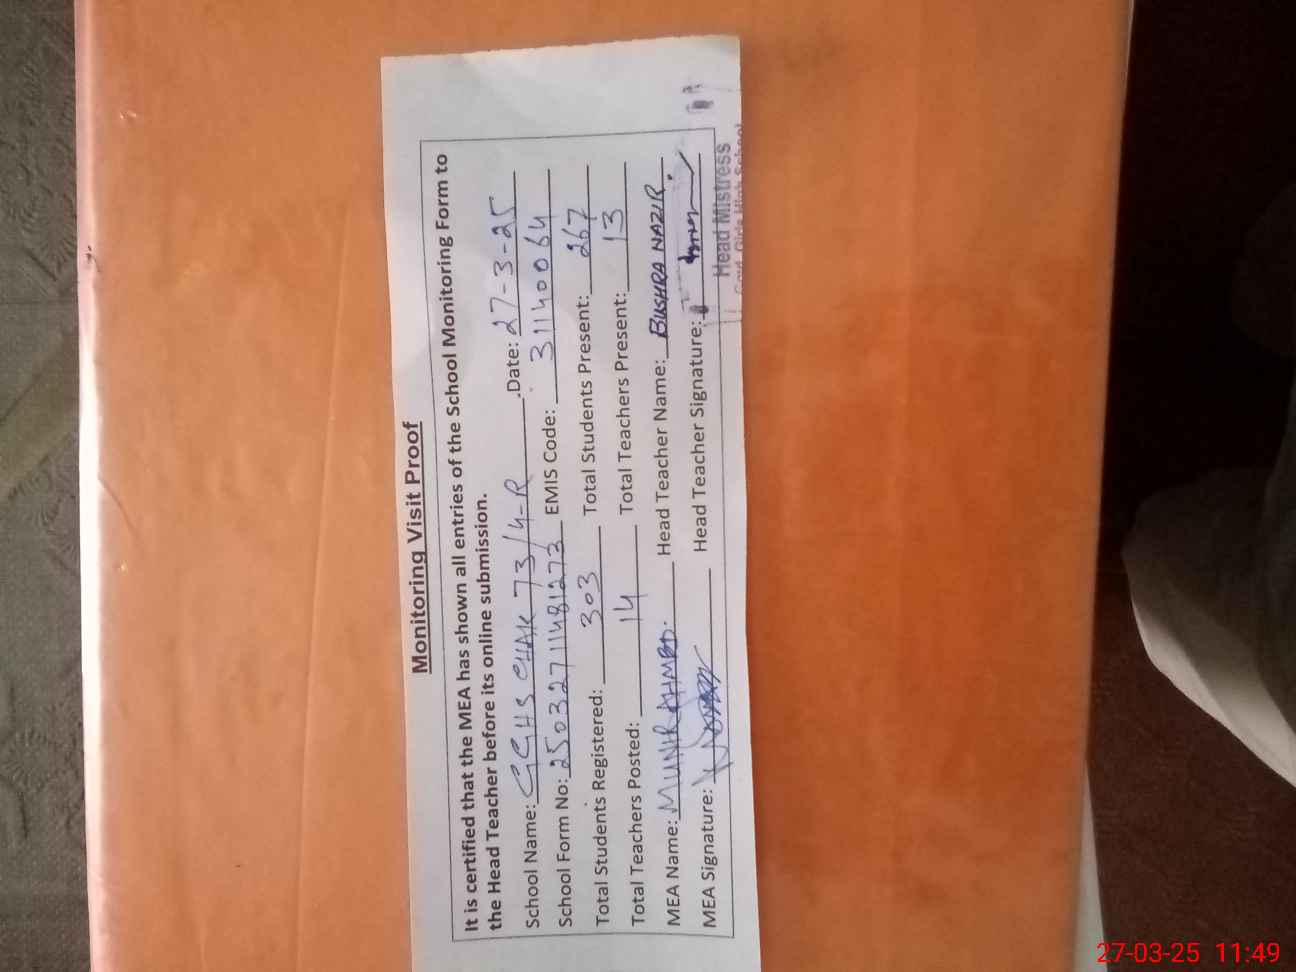 Monitoring Visit Proof
It is certified that the MEA has shown all entries of the School Monitoring Form to
the Head Teacher before its online submission.
School Name: GGHS CHAK 73/4-R .Date: 27-3-25
School Form No: 25032711481273 EMIS Code: 31140064
Total Students Registered: 303 Total Students Present: 267
Total Teachers Posted: 14 Total Teachers Present: 13
MEA Name: MUNIR AHMED. Head Teacher Name: BUSHRA NAZIR
MEA Signature: Head Teacher Signature:
Head Mistress
Govt. Girls High School
27-03-25 11:49